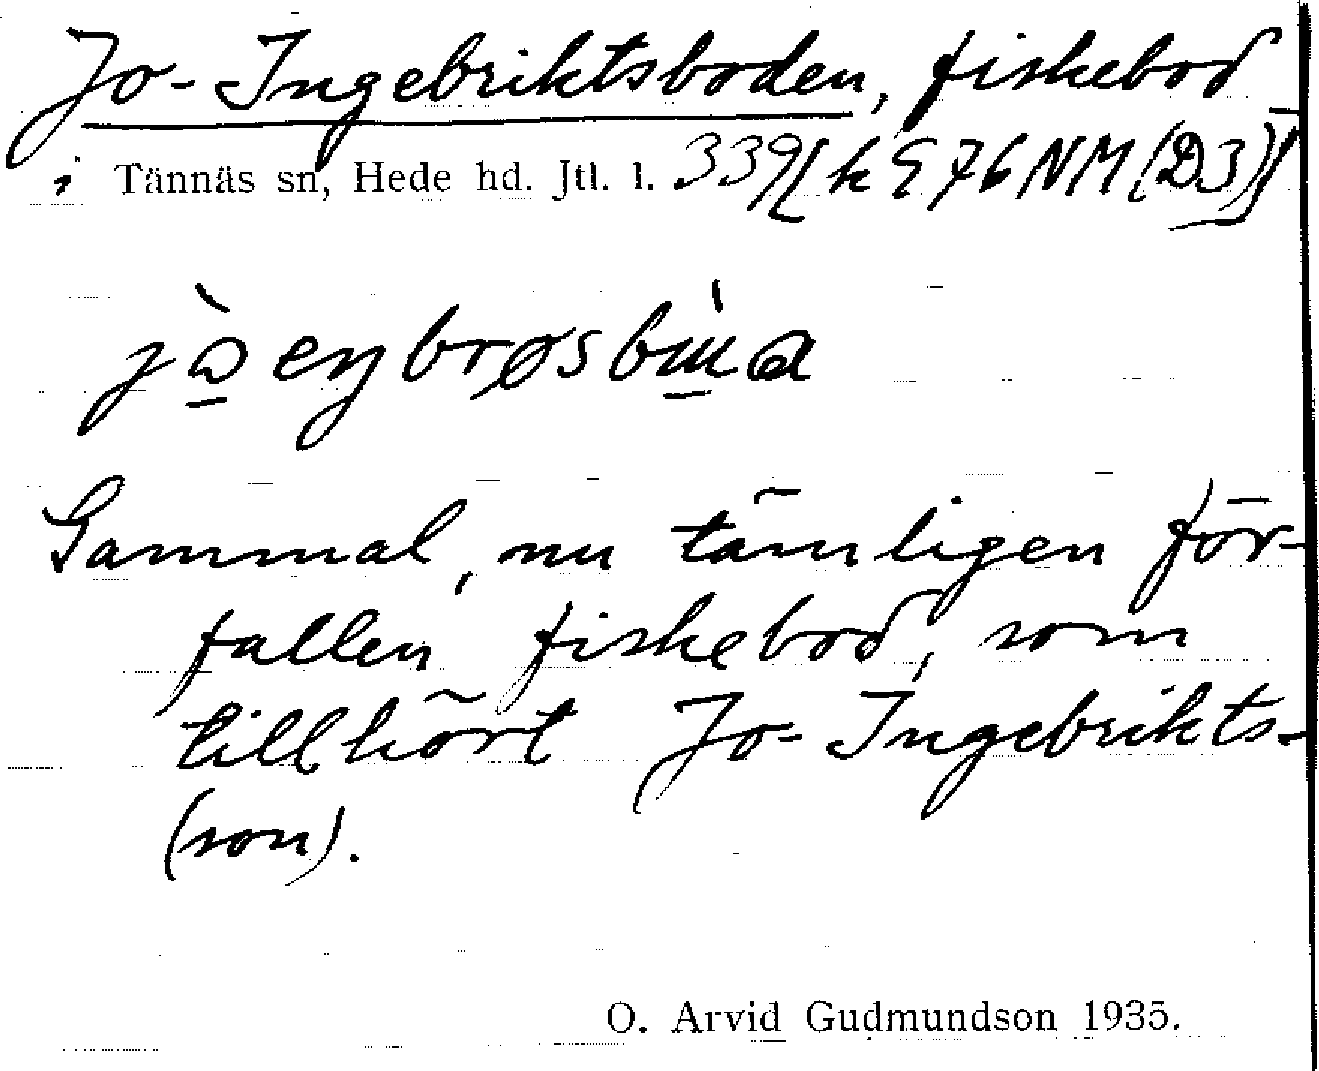 Jo-Ingebriktsboden, fiskebod
i Tännäs sn, Hede hd. Jtl. l. 339[k 976 NM (D3)]
Gammal, nu tämligen för-
fallen fiskebod, som
tillhört Jo-Ingebrikts-
(son).
O. Arvid Gudmundson 1935.